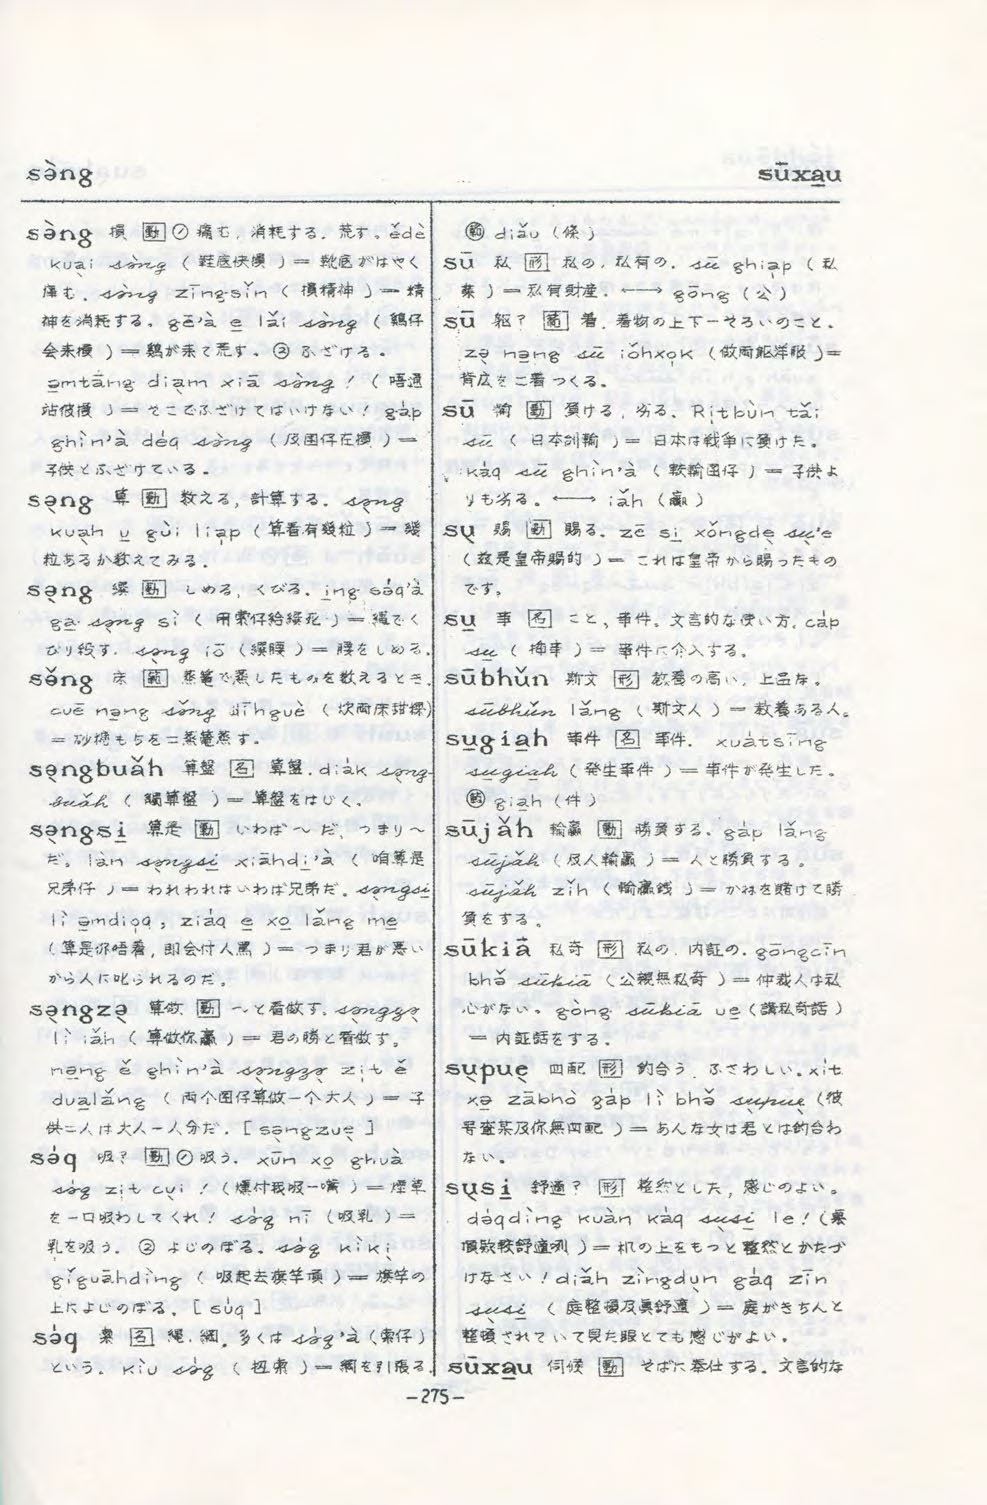 sə̀ng
sūxa̱u
sə̀ng 損 [動]①痛む,消耗する.荒す。ědè
kuại sə̀ng (鞋底快損)=靴底がはやく
痛む. sə̀ng zīng-sǐn (損精神)=精
神を消耗する。gē'à e̱ lǎi sə̀ng (鶏仔
会来損)=鶏が来て荒す。②ふざける。
ə̱mtāng diạm xiā sə̀ng! (唔通
站彼損)=そこでふざけてはいけない! gáp
ghìn'à déq sə̀ng (及囝仔在損)=
子供とふざけている。
sə̣ng 算 [動] 数える,計算する. sə̣ng
kuạh u̱ gùi liáp (算看有幾粒)=幾
粒あるか数えてみる.
sə̣ng 繏 [動] しめる,くびる. i̱ng sóq'à
gạ sə̣ng sì (用索仔給繏死)=縄でく
びり殺す. sə̣ng iō (繏腰)=腰をしめる.
sə̌ng 床 [範] 蒸篭で蒸したものを数えるとき.
cuē nạng sə̌ng dīhguè (炊両床甜粿)
=砂糖もちを二蒸篭蒸す。
sə̣ngbuǎh 算盤 [名] 算盤. diák sə̣ng-
buǎh (擉算盤)=算盤をはじく.
sə̣ngsi̱ 算是 [動] いわば〜だ,つまり〜
だ。làn sə̣ngsi̱ xiāhdị'à (咱算是
兄弟仔)=われわれはいわば兄弟だ. sə̣ngsi̱
lì ə̱mdiọq, ziáq e̱ xọ lǎng mẹ
(算是你唔着,即会付人罵)=つまり君が悪い
から人に叱られるのだ。
sə̣ngzə̣ 算做 [動] 〜と看做す. sə̣ngzə̣
lì iǎh (算做你贏)=君の勝と看做す。
nə̣ng ě ghìn'à sə̣ngzə̣ zịt ě
duạlǎng (両个囝仔算做一个大人)=子
供二人は大人一人分だ. [sə̣ngzuẹ]
sə́q 吸? [動]①吸う. xūn xọ ghuà
sə́q zịt cuị! (燻付我吸一嘴)=煙草
を一口吸わしてくれ! sə́q nī (吸乳)=
乳を吸う. ②よじのぼる. sə́q kìkị
gǐguāhdìng (吸起去旗竿頂)=旗竿の
上によじのぼる. [súq]
sə́q 索 [名] 縄.綱.多くは sə́q'à (索仔)
という. kìu sə́q (扭索)=綱を引張る.
㊐ diǎu (條)
sū 私 [形] 私の,私有の. sū ghiạp (私
業)=私有財産. ←→ gōng (公)
sū 軀? [範] 着.着物の上下一そろいのこと.
zə̣ nạng sū iǒhxọk (做両軀洋服)=
背広を二着つくる。
sū 輸 [動] 負ける,劣る. Rịtbùn tǎi
sū (日本刣輸)=日本は戦争に負けた。
káq sū ghìn'à (較輸囝仔)=子供よ
りも劣る. ←→ iǎh (贏)
sụ 賜 [動] 賜る. zē si̱ xǒngdẹ sụ'e
(玆是皇帝賜的)=これは皇帝から賜ったもの
です。
su̱ 事 [名] こと,事件。文言的な使い方. cáp
su̱ (挿事)=事件に介入する。
sūbhǔn 斯文 [形] 教養の高い.上品な.
sūbhǔn lǎng (斯文人)=教養ある人。
su̱gia̱h 事件 [名] 事件. xuátsīng
su̱gia̱h (発生事件)=事件が発生した。
㊐ gia̱h (件)
sūjǎh 輸贏 [動] 勝負する. gáp lǎng
sūjǎh (及人輸贏)=人と勝負する。
sūjǎh zǐh (輸贏銭)=かねを賭けて勝
負をする。
sūkiā 私奇 [形] 私の.内証の. gōngcīn
bhǒ sūkiā (公親無私奇)=仲裁人は私
心がない。gòng sūkiā ue̱ (講私奇話)
=内証話をする.
sụpuẹ 四配 [形] 釣合う.ふさわしい. xít
xə̣ zābhò gáp lì bhǒ sụpuẹ (彼
号査某及你無四配)=あんな女は君とは釣合わ
ない。
sụsi̱ 舒適? [形] 整然とした,感じのよい。
dóqdìng kuàn káq sụsi̱ le! (卓
頂欵較舒適咧)=机の上をもっと整然とかたづ
けなさい! diǎh zìngdụn gáq zīn
sụsi̱ (庭整頓及眞舒適)=庭がきちんと
整頓されていて見た眼とても感じがよい。
sūxa̱u 伺候 [動] そばに奉仕する.文言的な
-275-